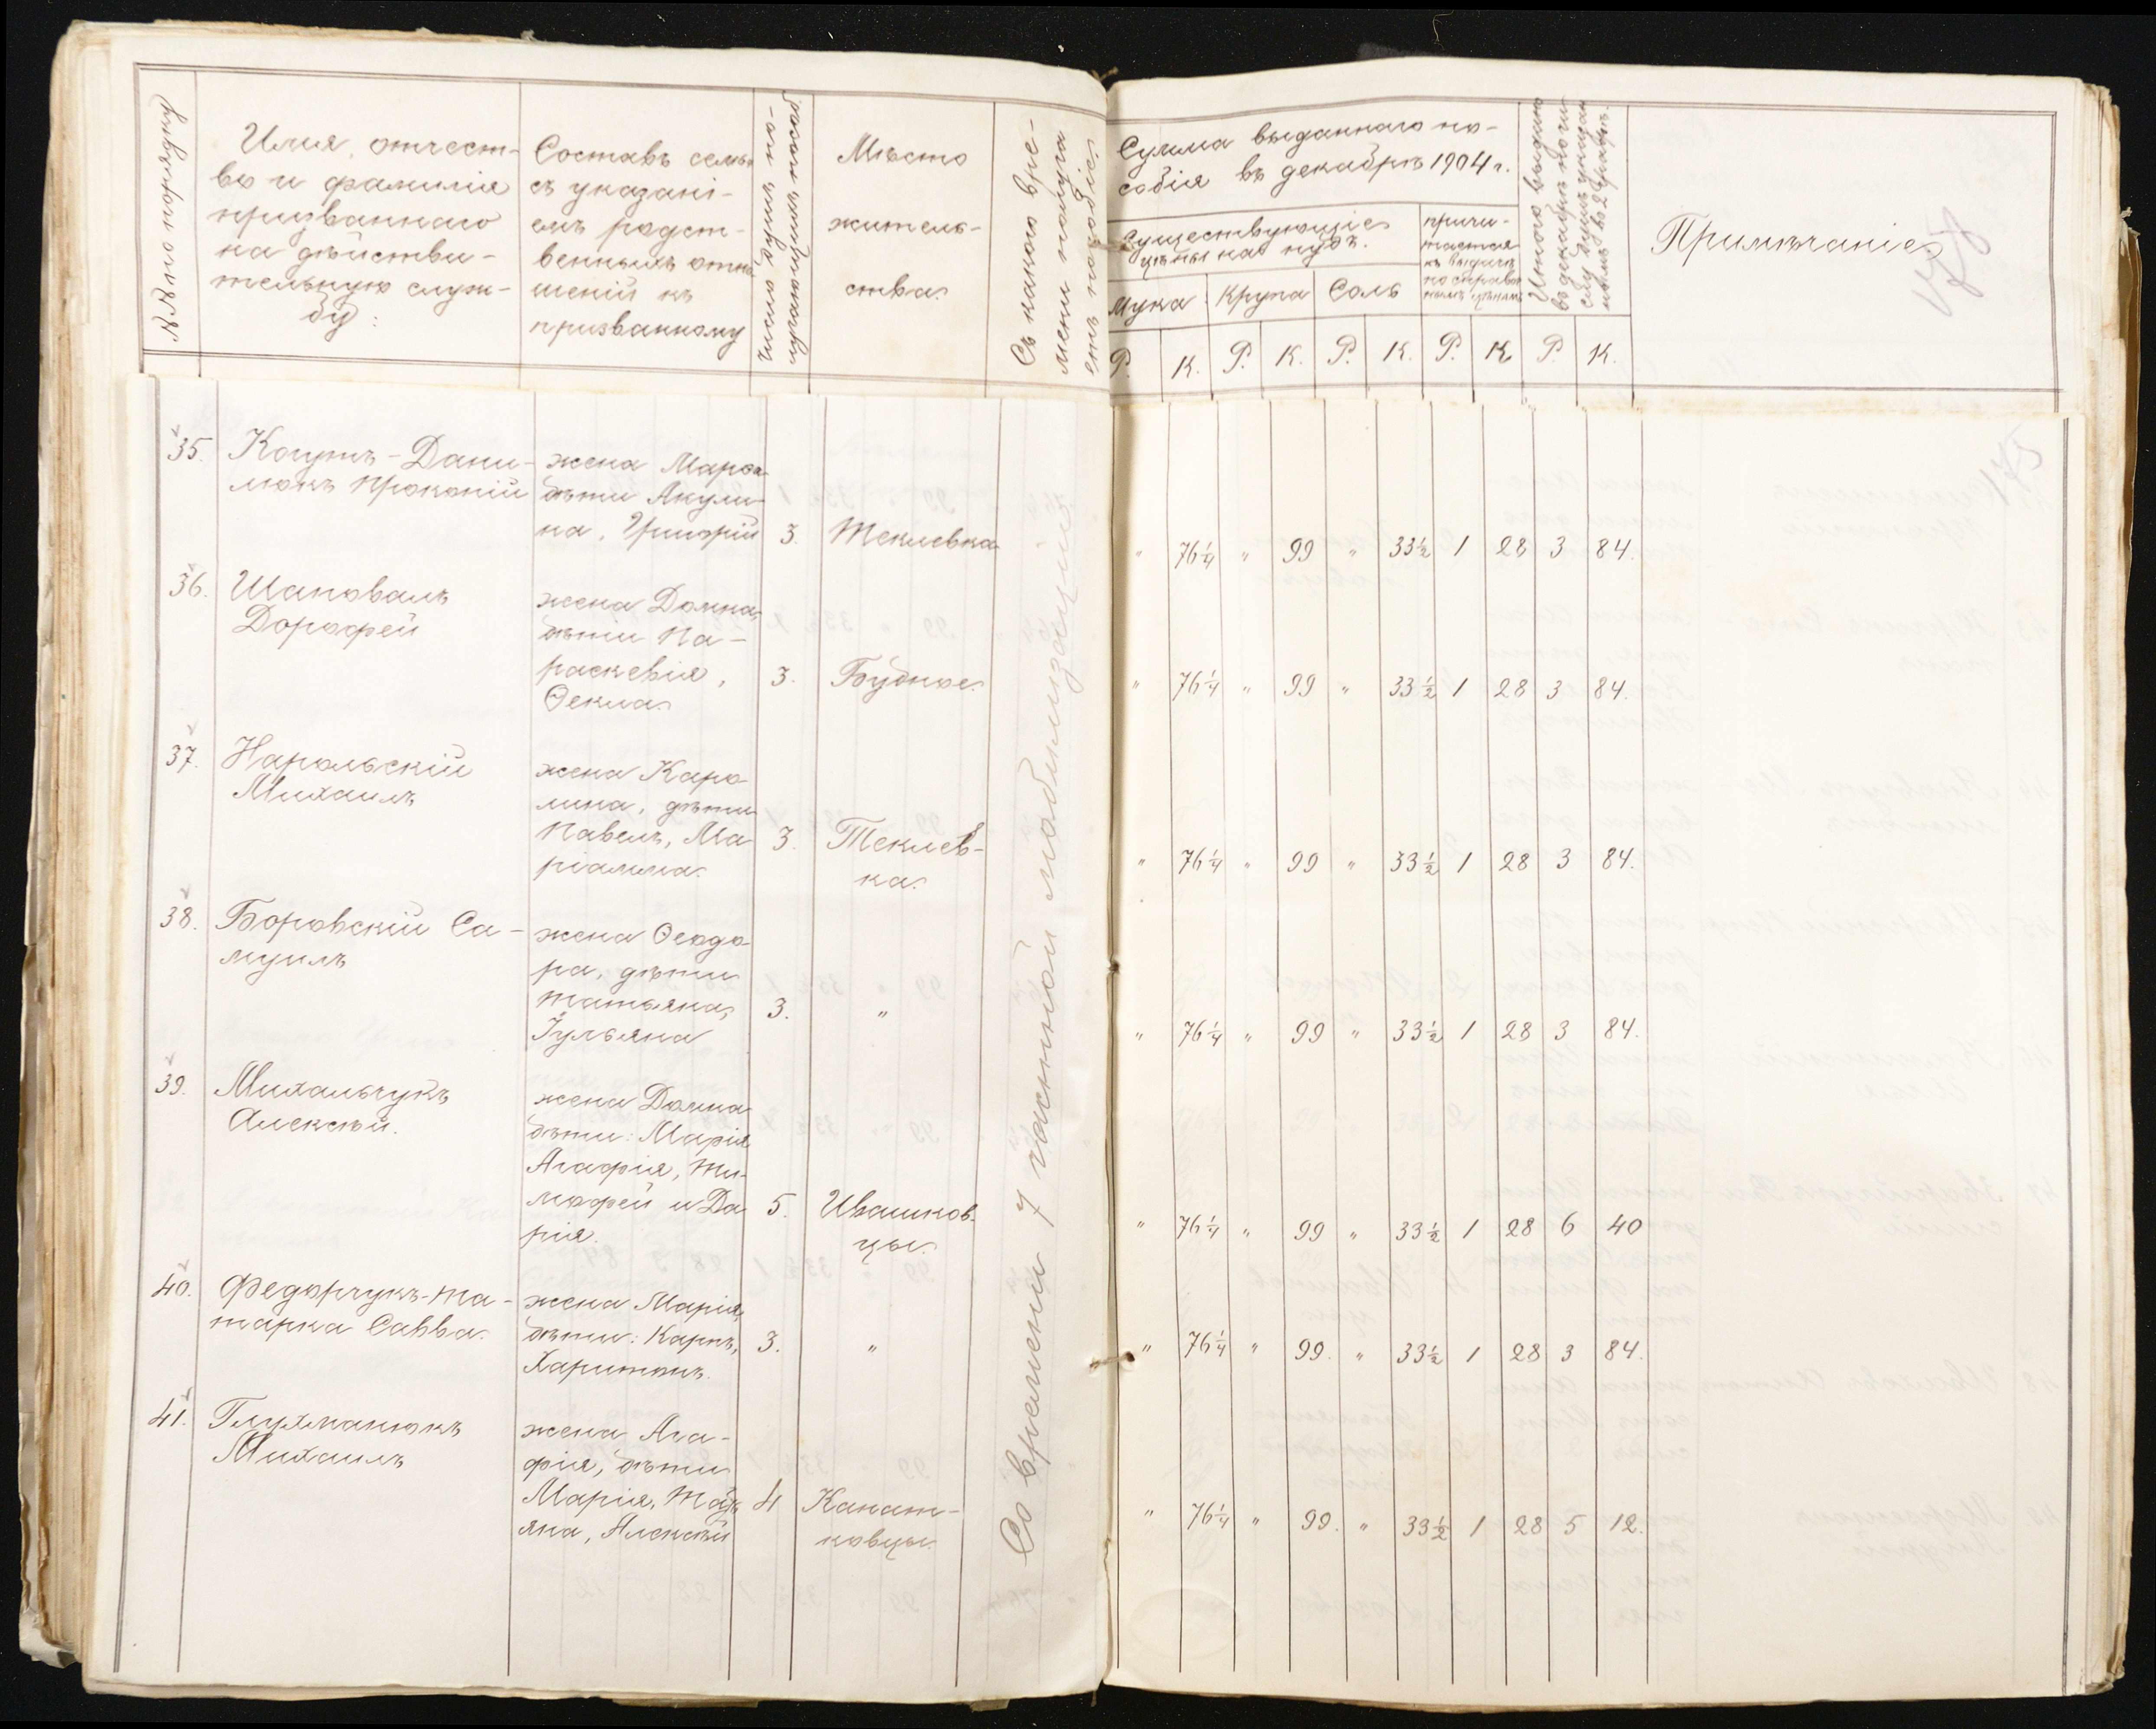 №№ по порядку
Имя, отчест-
во и фамилія
призваннаго
на дѣйстви-
тельную служ-
бу:
Составъ семьи
съ указані-
емъ родст-
венныхъ отно
шеній къ
призванному
число душъ по-
Мѣсто
житель-
ства.
Съ какого вре-
мени получа
етъ пособіе
Сумма выданнаго по-
собія въ декабрѣ 1904 г.
Существующіе
цѣны на пудъ.
Мука
Крупа
Соль
причи-
тается
къ выдачѣ
по справоч
нымъ цѣнамъ
Итого выдано
въ декабрѣ по чи
слу душъ
Примѣчаніе
Р. К. Р. К. Р. К. Р. К. Р. К.
175
35. Когутъ-Дани-
люкъ Прокопій
жена Марѳа
дѣти Акули-
на, Григорій
3. Теклевка
" 76 1/4 " 99 " 33 1/2 1 28 3 84.
36. Шаповалъ
Дорофей
жена Домна,
дѣти Па-
раскевія,
Ѳекла.
3. Будное.
" 76 1/4 " 99 " 33 1/2 1 28 3 84.
37. Нарольскій
Михаилъ
жена Каро
лина, дѣти
Павелъ, Ма
ріанна.
3. Теклев-
ка.
" 76 1/4 " 99 " 33 1/2 1 28 3 84.
38. Боровскій Са-
муилъ
жена Ѳеодо
ра, дѣти
Татьяна,
Іульяна
3. "
" 76 1/4 " 99 " 33 1/2 1 28 3 84.
39. Михальчукъ
Алексѣй.
жена Домна
дѣти: Марія
Агафія, Ти-
мофей и Да
рія.
5. Ивашков-
цы.
" 76 1/4 " 99 " 33 1/2 1 28 6 40
40. Федорчукъ-Та-
тарка Савва.
жена Марія,
дѣти: Карпъ,
Харитонъ.
3. "
" 76 1/4 " 99. " 33 1/2 1 28 3 84.
41. Глухманюкъ
Михаилъ
жена Ага-
фія, дѣти
Марія, Тать
яна, Алексѣй
4 Канат-
ковцы.
" 76 1/4 " 99. " 33 1/2 1 28 5 12.
Со времени 7 частной мобилизаціи